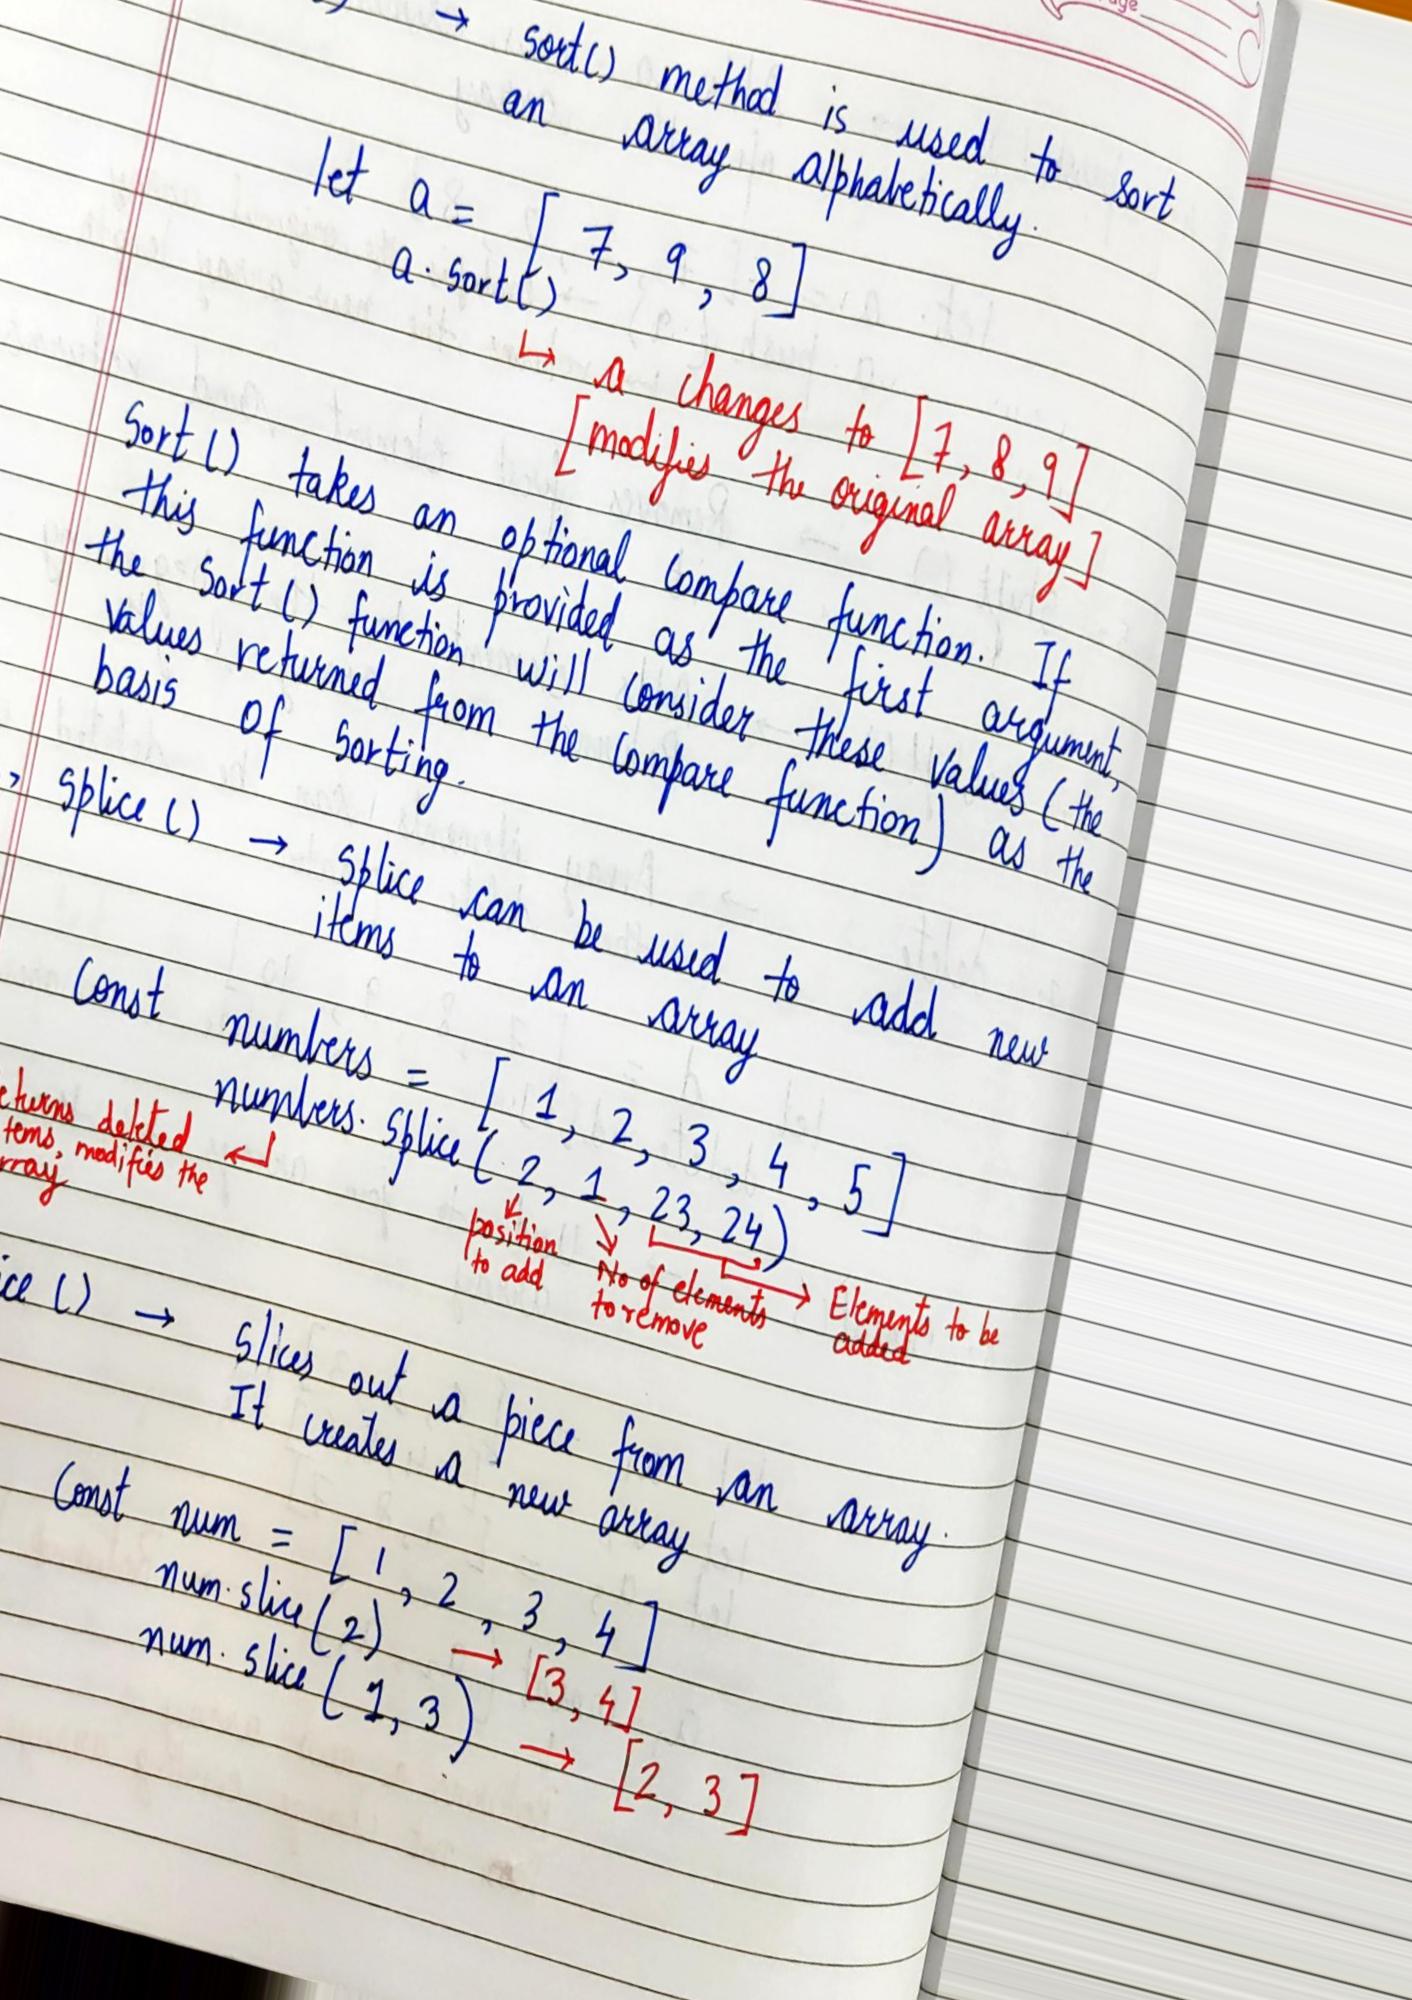 → sort() method is used to sort
an array alphabetically.
let a = [7, 9, 8]
a.sort()
↳ a changes to [7, 8, 9]
[modifies the original array]
Sort() takes an optional compare function. If
this function is provided as the first argument,
the sort() function will consider these values (the
values returned from the compare function) as the
basis of sorting.
splice() → splice can be used to add new
items to an array
Const numbers = [1, 2, 3, 4, 5]
numbers.splice(2, 1, 23, 24)
deleted
modifies the
position
to add
No of elements
to remove
→ Elements to be
added
→ slices out a piece from an array.
It creates a new array
Const num = [1, 2, 3, 4]
num.slice(2) → [3, 4]
num.slice(1, 3) → [2, 3]